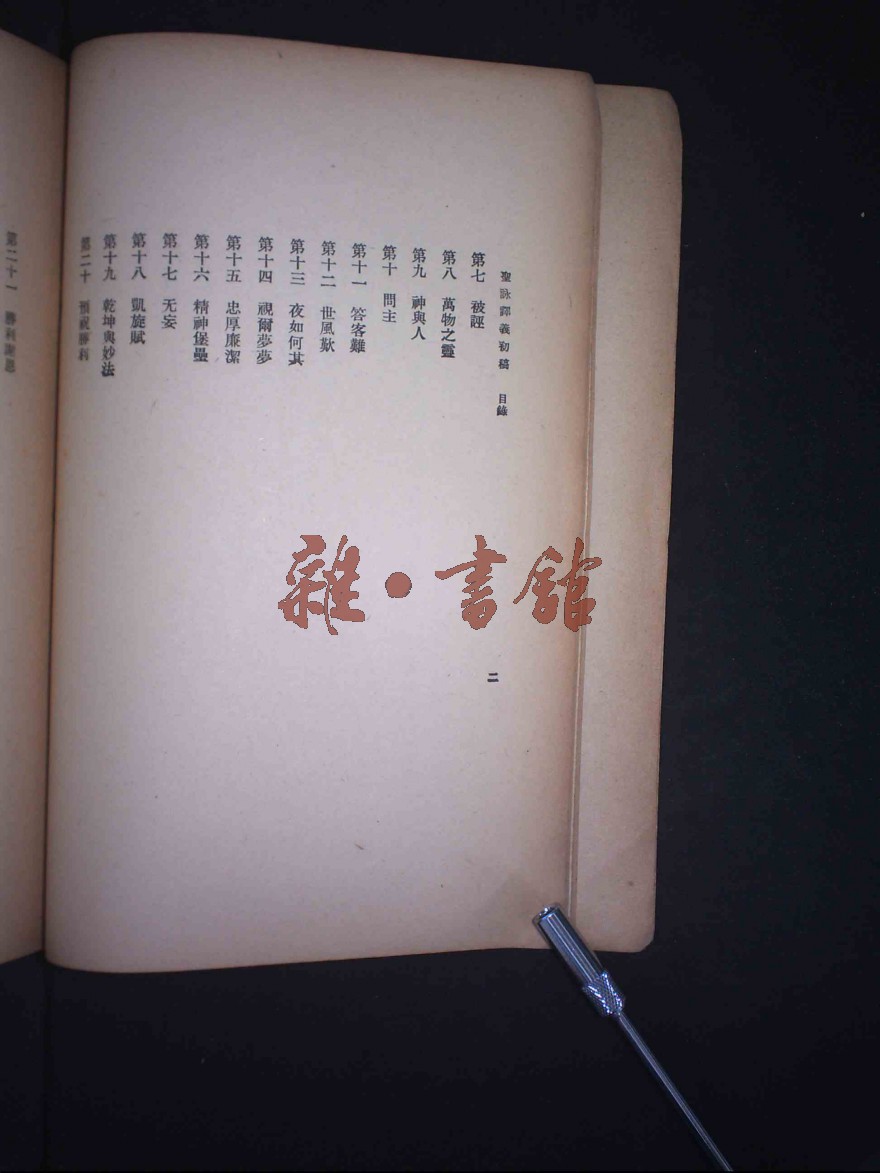 聖詠譯義初稿 目錄
第七 被誣
第八 萬物之靈
第九 神與人
第十 問主
第十一 答客難
第十二 世風歎
第十三 夜如何其
第十四 視爾夢夢
第十五 忠厚廉潔
第十六 精神堡壘
第十七 无妄
第十八 凱旋賦
第十九 乾坤與妙法
第二十 預祝勝利
二
第二十一 勝利謝恩
雜·書館